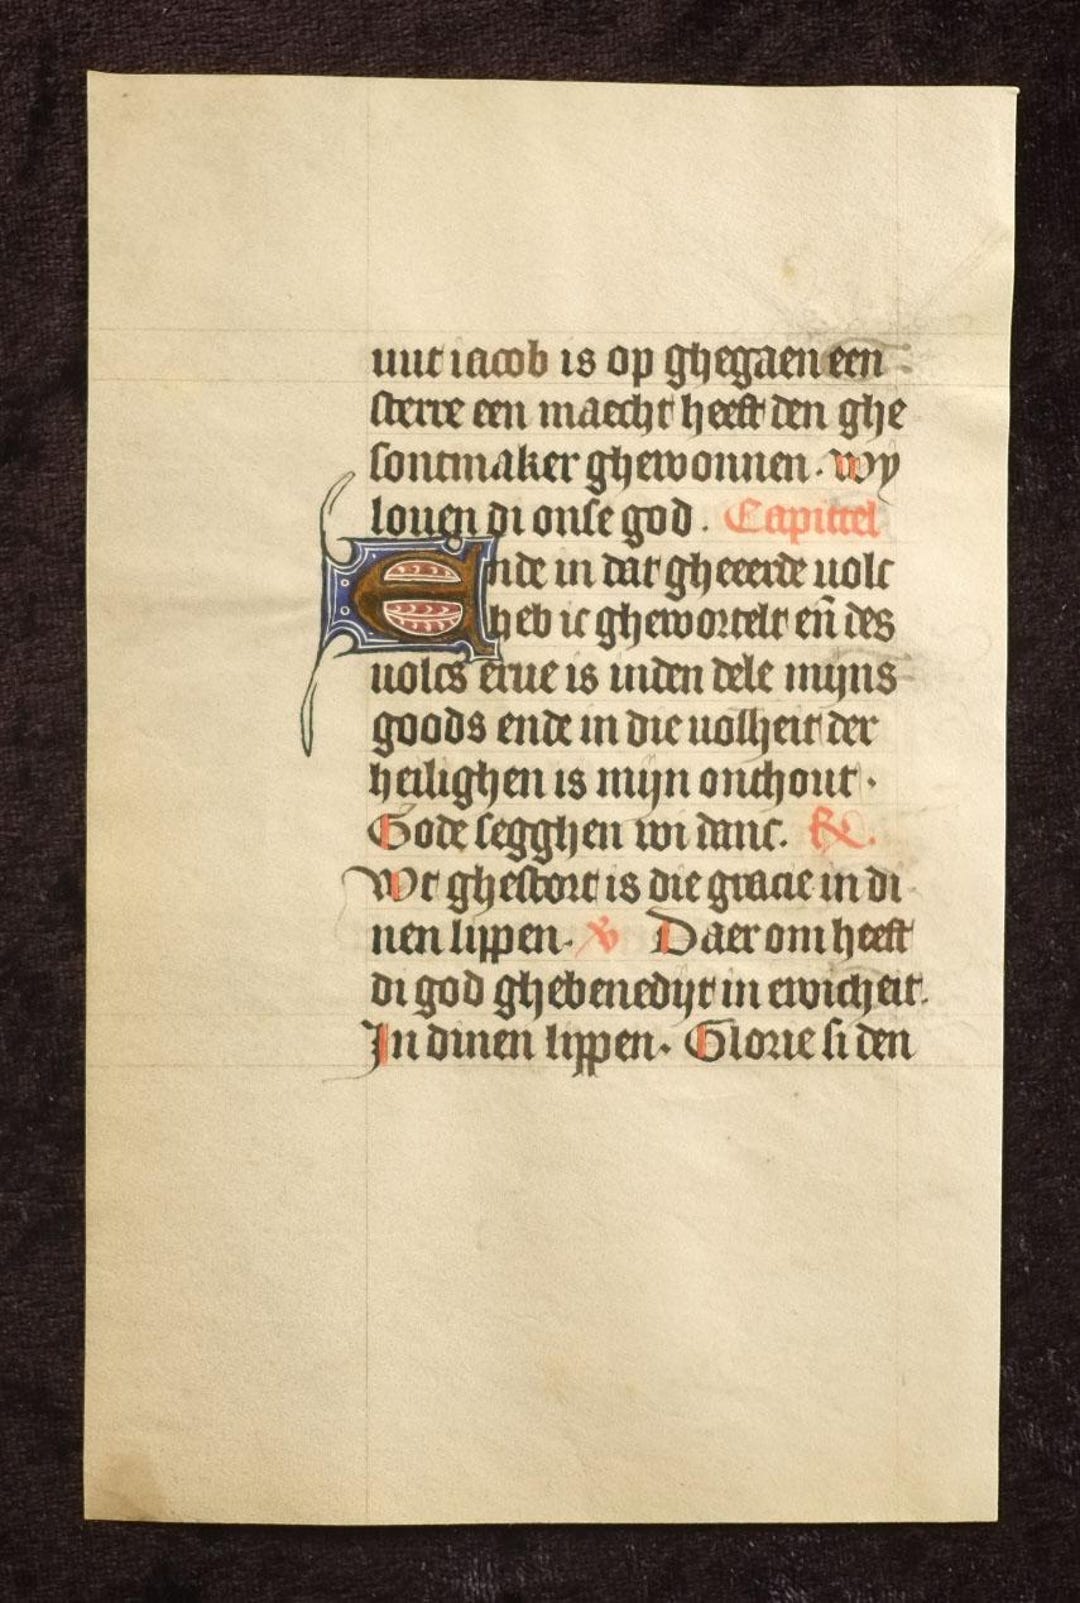 uut iacob is op ghegaen een
sterre een maecht heeft den ghe
sontmaker ghewonnen. Wy
louen di onse god. Capittel
Ende in dat gheeerde uolc
heb ic ghewortelt eñ des
uolcs erue is inden dele mijns
goods ende in die uolheit der
heilighen is mijn onthout.
Gode segghen wi danc. R.
Wt ghestort is die gracie in di
nen lippen. V Daer om heeft
di god ghebenedijt in ewicheit.
In dinen lippen. Glorie si den